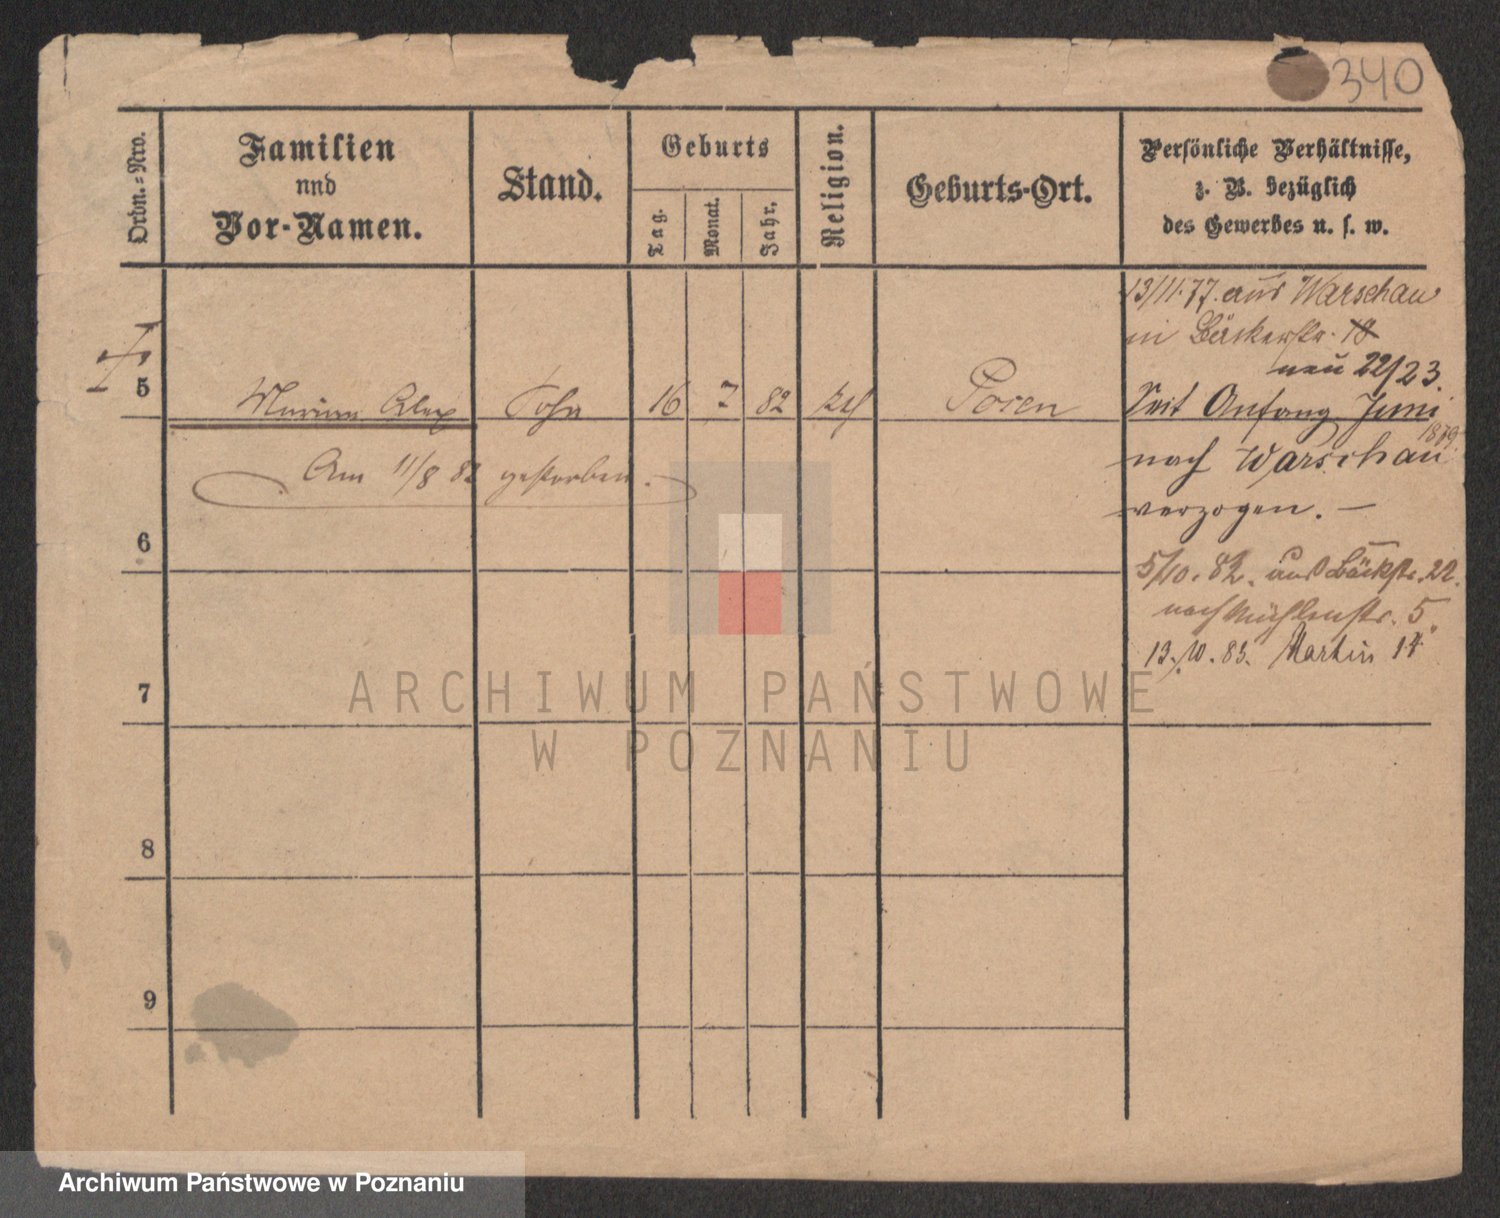 340
Ordn.-Nro.
Familien
nnd
Vor-Namen.
Stand.
Geburts
Tag.
Monat.
Jahr.
Religion.
Geburts-Ort.
Persönliche Verhältnisse,
z. B. bezüglich
des Gewerbes u. s. w.
13/11.77. aus Warschau
in Bäckerstr. 18
neu 22/23.
5 Marian Alex Sohn 16 7 82 Posen Seit Anfang Juni
1879
Am 11/8 82 gestorben. nach Warschau
verzogen. —
6
5/10. 82. aus Bäckstr. 22.
nach Mühlenstr. 5.
13.10.83. Martin 14
7
ARCHIWUM PAŃSTWOWE
W POZNANIU
8
9
Archiwum Państwowe w Poznaniu